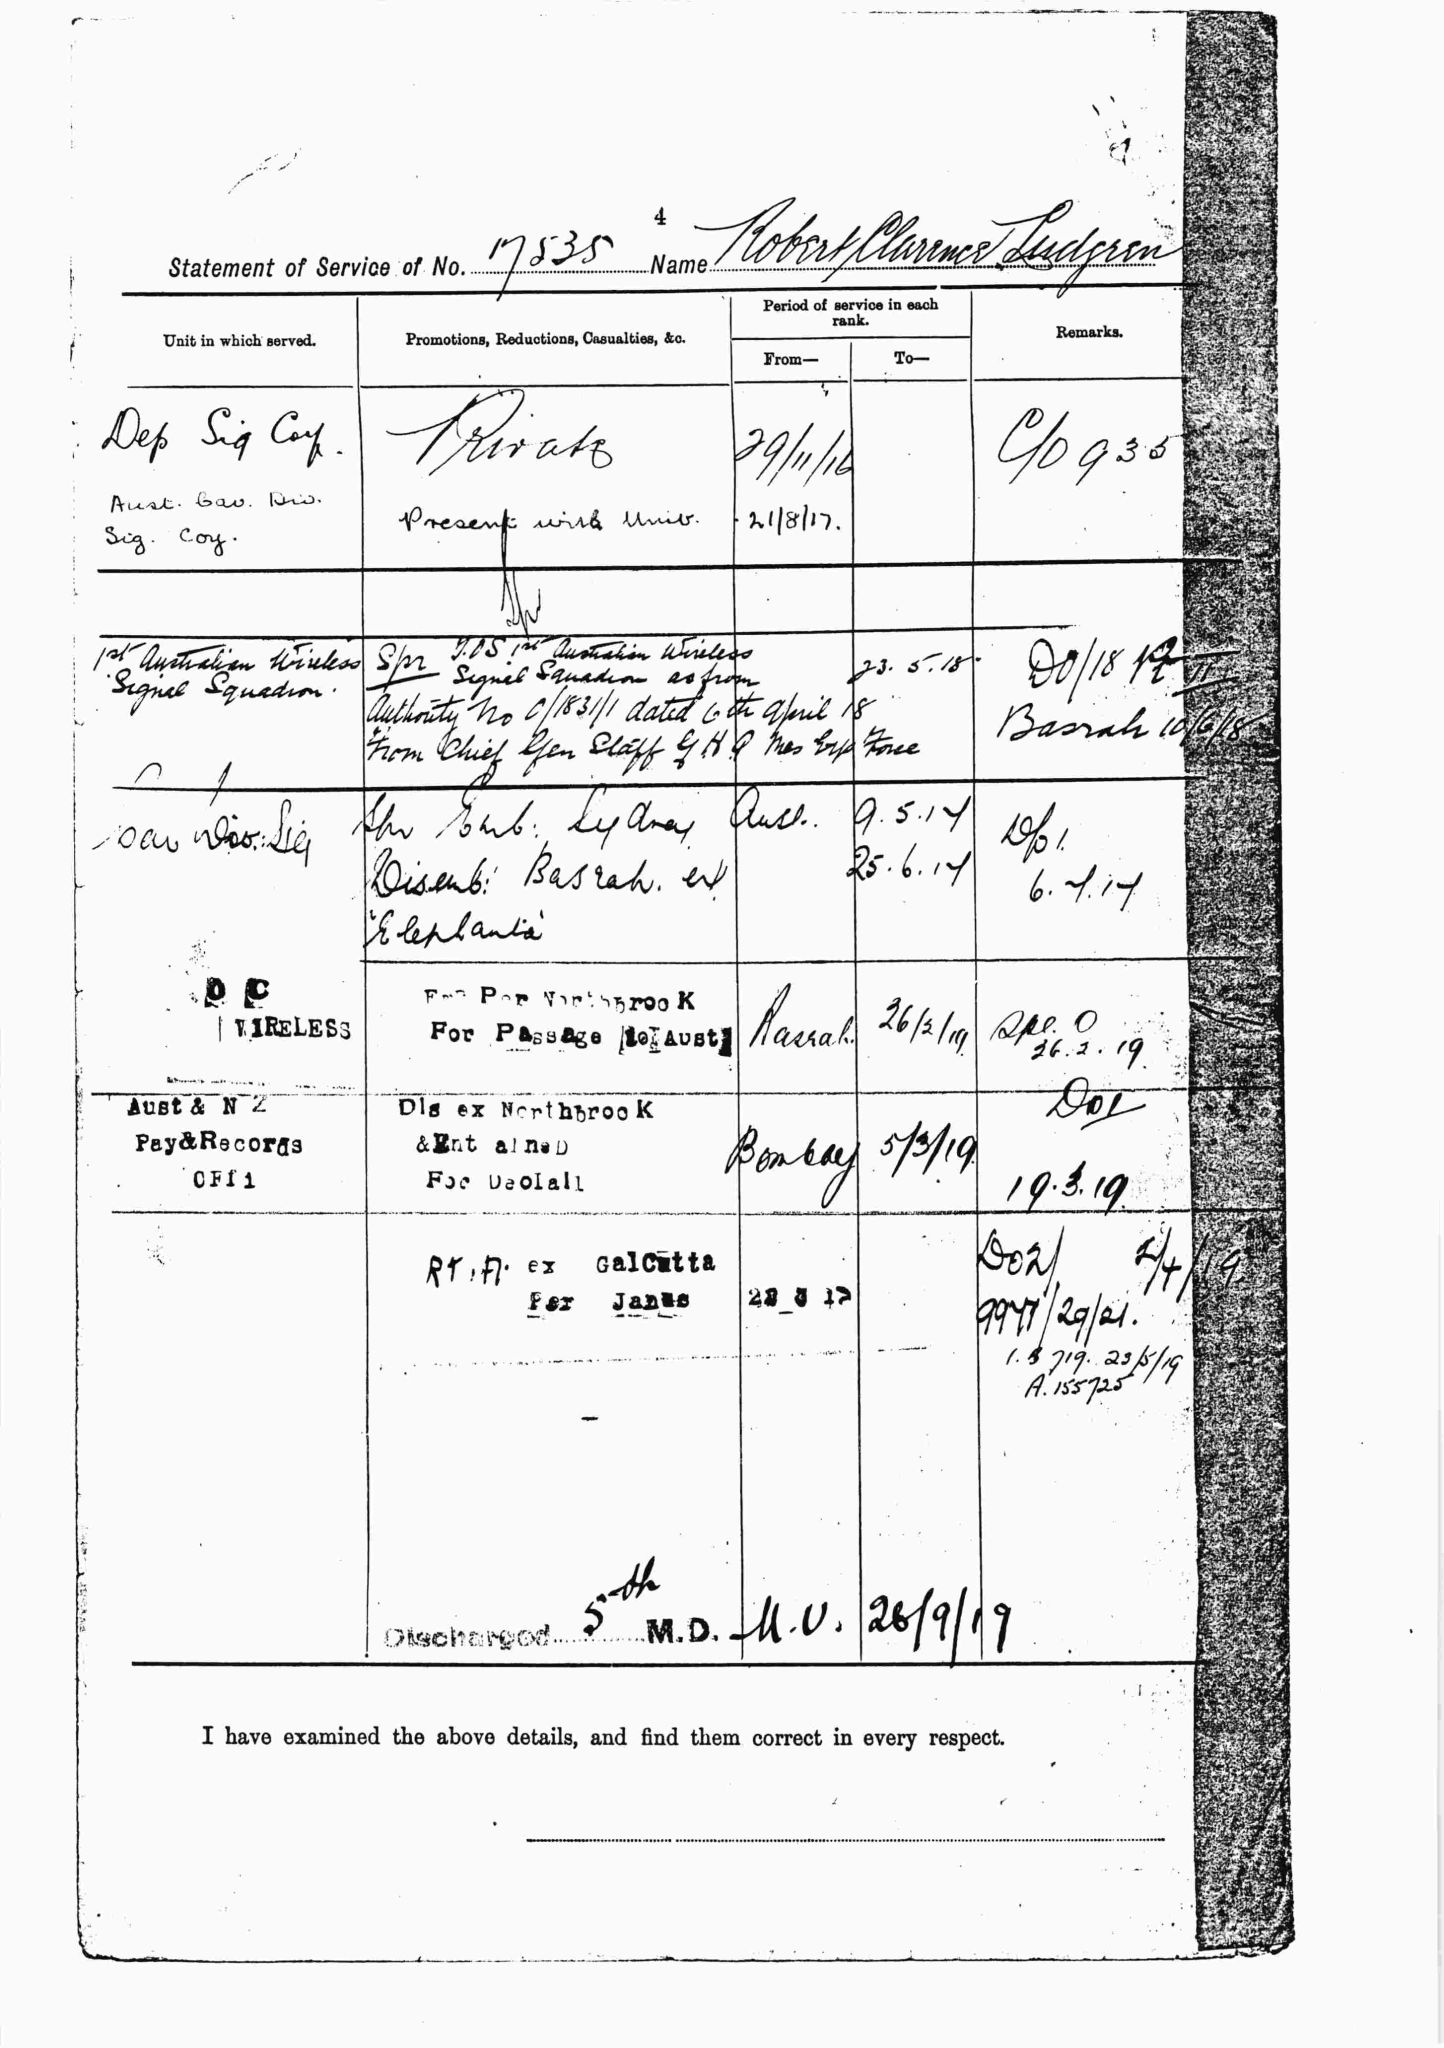 4
Statement of Service of No. 17535 Name Robert Clarence Ludgren
Unit in which served.
Promotions, Reductions, Casualties, &c.
Period of service in each
rank.
From—
To—
Remarks.
Dep Sig Coy.
Private
29/11/16
C/O 935
Aust. Cav. Div.
Sig. Coy.
Present with Unit.
21/8/17.
1st Australian Wireless
Signal Squadron.
Spr T.O.S 1st Australian Wireless
Signal Squadron as from
23.5.18
Authority No C/1831/1 dated 6th April 18
From Chief Gen Staff G H Q Mes Exp Force
DO/18
Basrah 10/6/18
Cav Div: Sig
Spr Emb: Sydney Aust.
9.5.17
Disemb: Basrah. ex
25.6.17
"Elephanta"
D/O 1.
6.7.17
O C
WIRELESS
Per NorthbrooK
For Passage to Aust
Basrah.
26/2/19
O
26.2.19
Aust & N Z
Pay&Records
OFfi
Dis ex NorthbrooK
&Ent aineD
For Deolali
Bombay
5/3/19
DO1
19.3.19
RT.A. ex Calcutta
Per Janus
DO2/ 2/4/19
9977/29/21.
1.3 719. 23/5/19
A.155725
Discharged 5th M.D. M.U. 26/9/19
I have examined the above details, and find them correct in every respect.